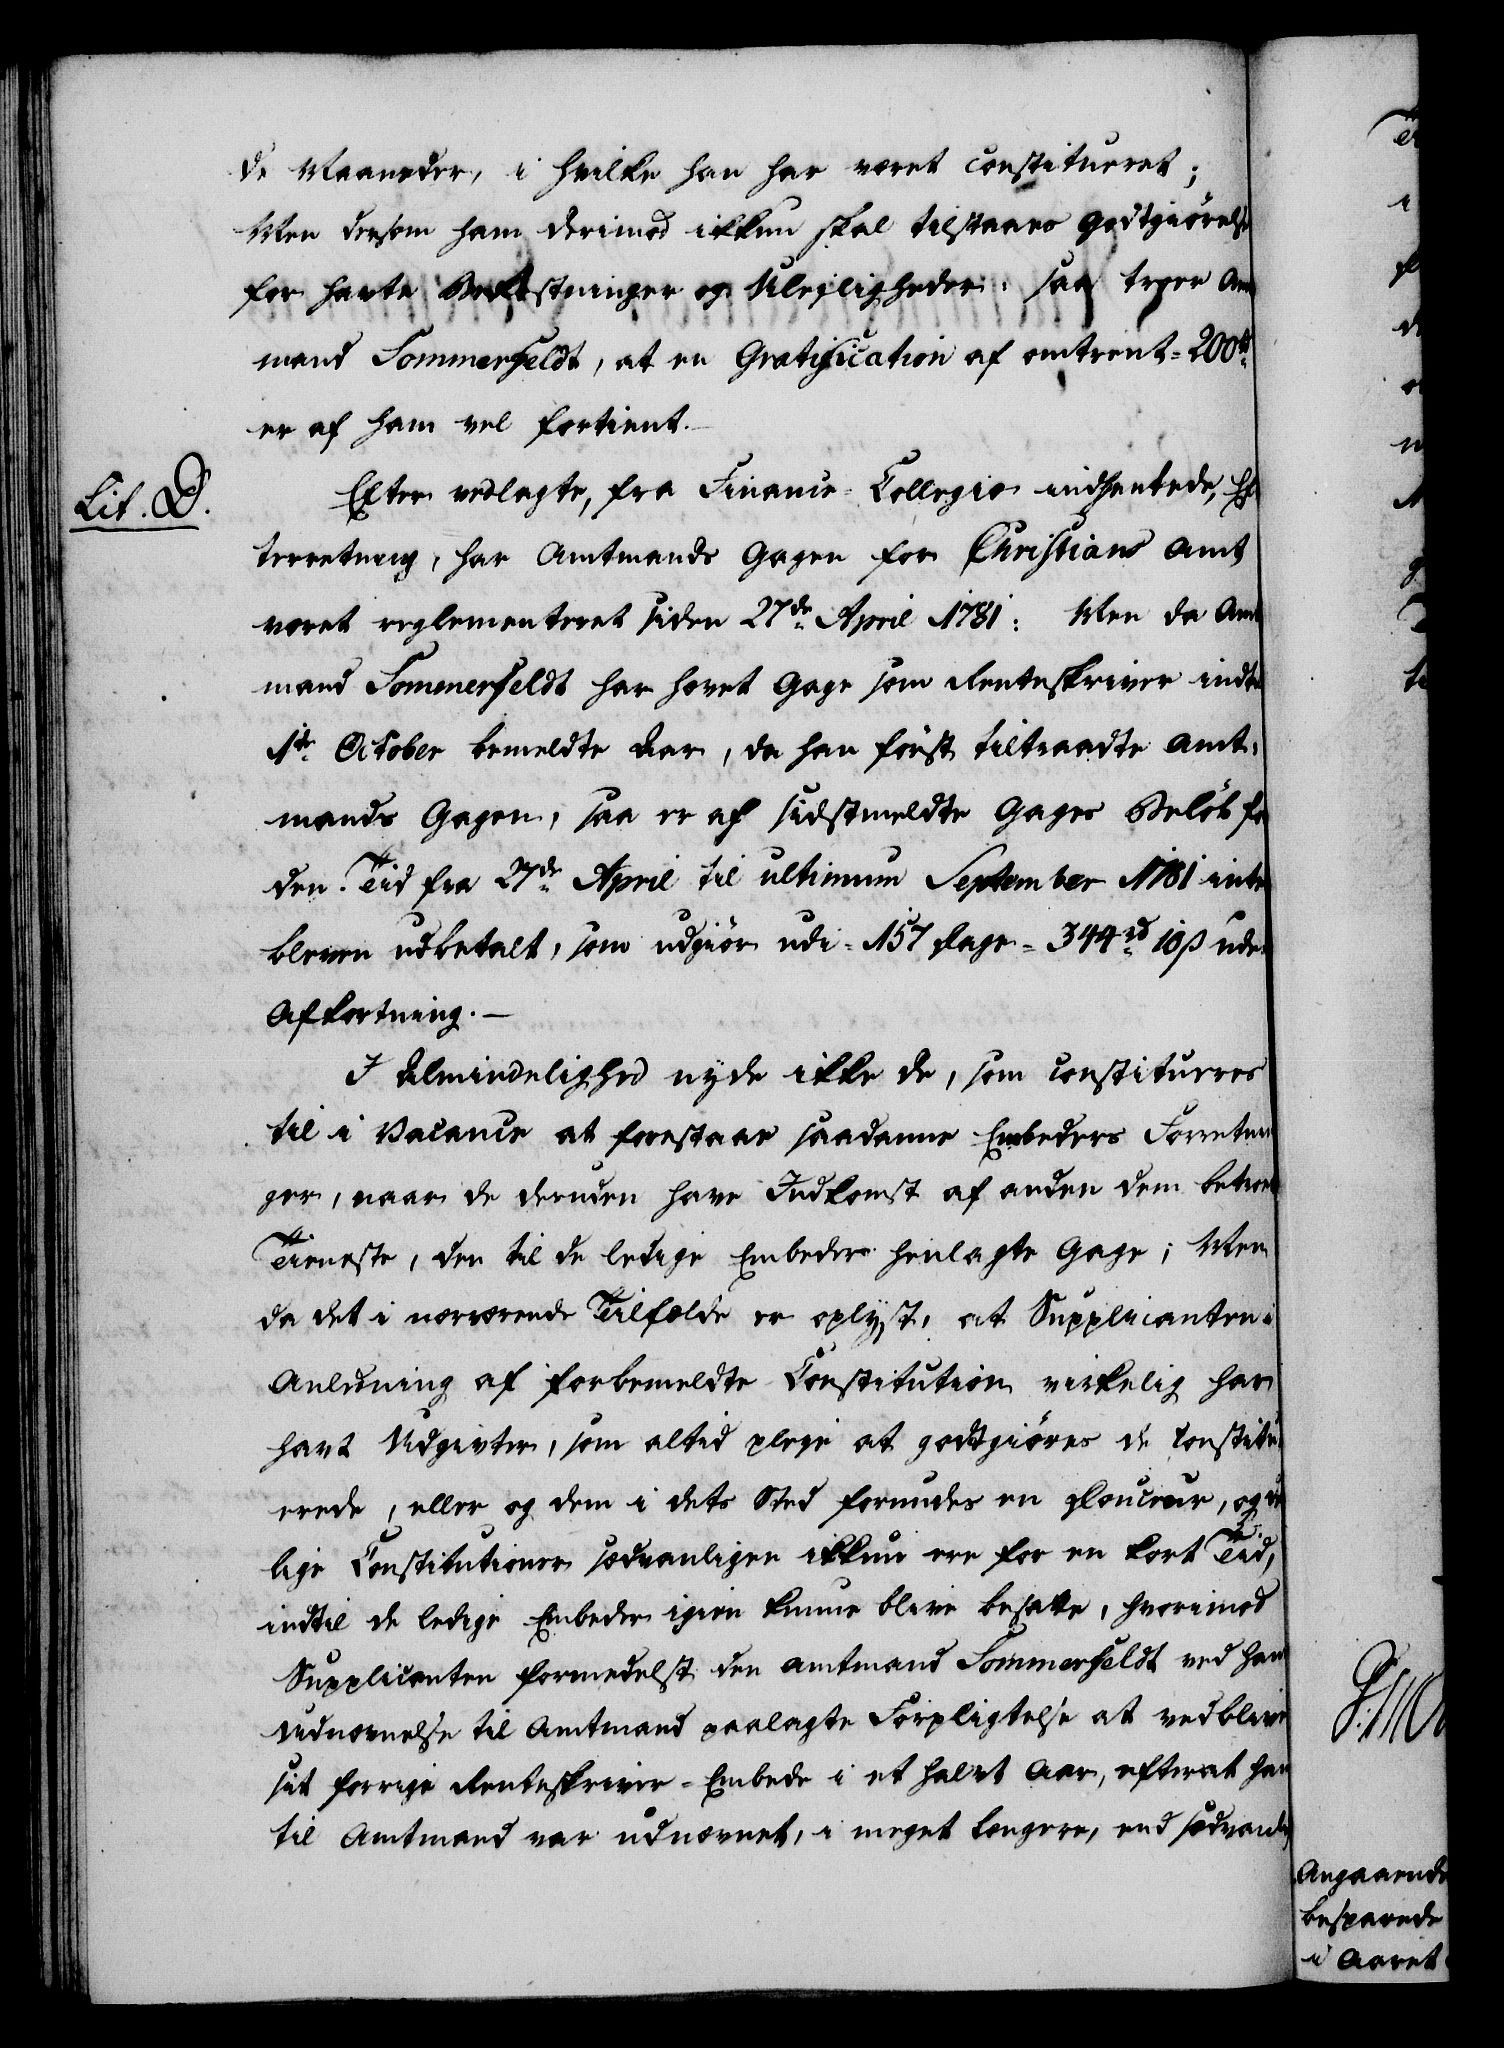 de Maaneder, i hvilke han har været constitueret;
Men dersom ham derimod ikkun skal tilstaaes Godtgiørelse
for havte Bekostninger og Uleiligheder, saa troer Amt
mand Sommerfeldt, at en Gratification af omtrent 200 rd
er af ham vel fortient.
Lit. D.
Efter vedlagte, fra Finance-Collegio indhentede, Ef
terretning, har Amtmands Gagen for Christians Amt
været reglementeret siden 27de April 1781: Men da Amt
mand Sommerfeldt har hævet Gage som Renteskriver indtil
1te October bemeldte Aar, da han først tiltraadte Amt-
mands Gagen, saa er af sidstmeldte Gages Beløb for
den Tid fra 27de April til ultimum September 1781 intet
bleven udbetalt, som udgiør udi 157 Dage = 344 rd 10 ß uden
Afkortning. —
I Almindelighed nyde ikke de, som constitueres
til i Vacance at forestaae saadanne Embeders Forretnin
ger, naar de deruden have Indkomst af anden dem betroet
Tieneste, den til de ledige Embeder henlagte Gage; Men
da det i nærværende Tilfælde er oplyst, at Supplicanten i
Anledning af forbemeldte Constitution virkelig har
havt Udgivter, som altid pleje at godtgiøres de Constitu
erede, eller og dem i dets Sted forundes en Douceur, og de
lige Constitutioner sædvanligen ikkun ere for en kort Tid,
indtil de ledige Embeder igien kunne blive besatte, hvorimod
Supplicanten formedelst den Amtmand Sommerfeldt ved hans
Udnævnelse til Amtmand paalagte Forpligtelse at vedblive
sit forrige Renteskriver-Embede i et halvt Aar, efterat han
til Amtmand var udnævnet, i meget længere, end sædvanlig
Angaaende
besparede
i Aaret